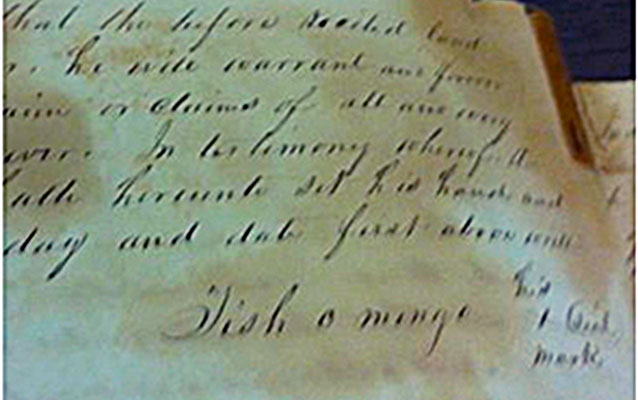 that the before recited land
r. he will warrant and forever
aim or claims of all and every
ever. In testimony whereof
hereunto set his hand and
day and date first above
Tish o mingo his
mark